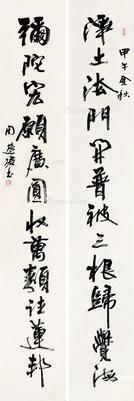 甲午金秋
淨土法門開普被三根歸覺海
彌陀宏願廣圓收萬類往蓮邦
周